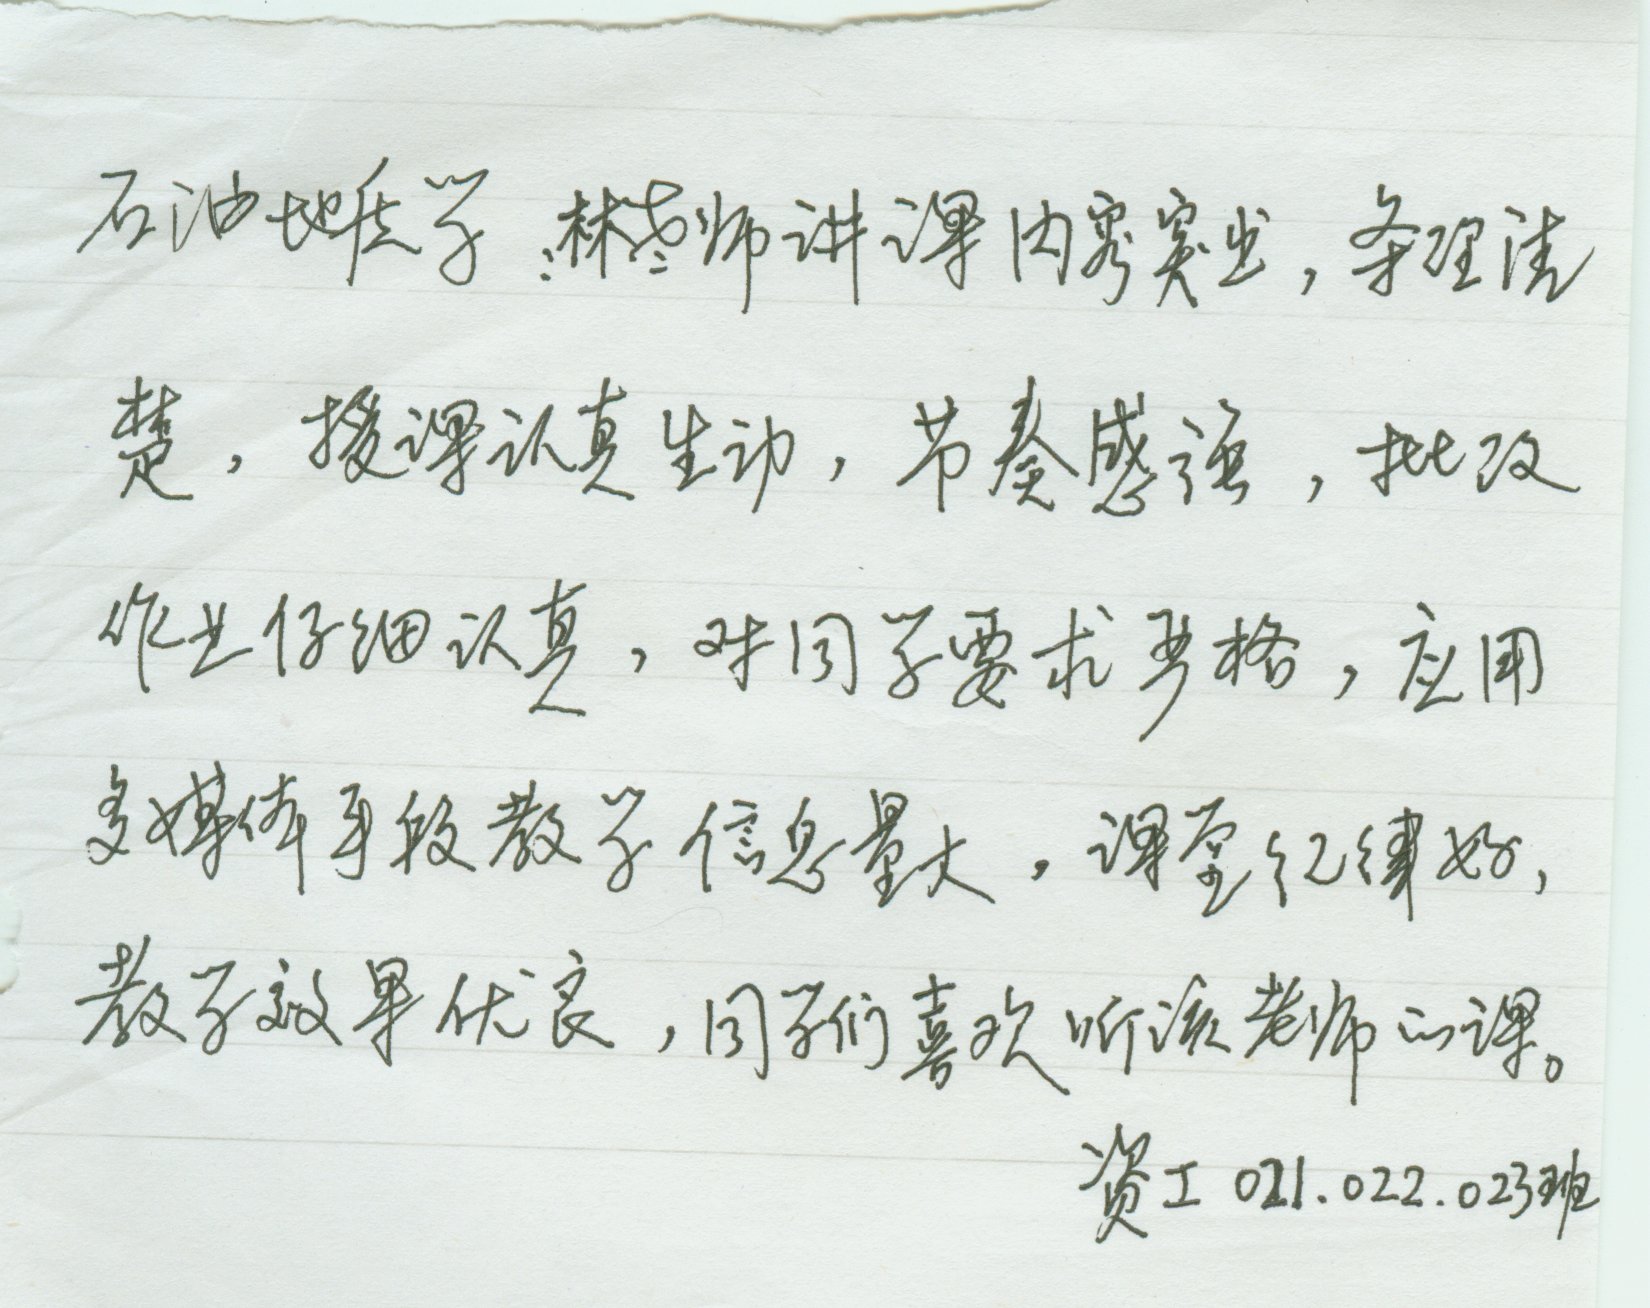 石油地质学：林老师讲课内容突出，条理清
楚，授课认真生动，节奏感强，批改
作业仔细认真，对同学要求严格，应用
多媒体手段教学信息量大，课堂纪律好，
教学效果优良，同学们喜欢听该老师的课。
资工021.022.023班